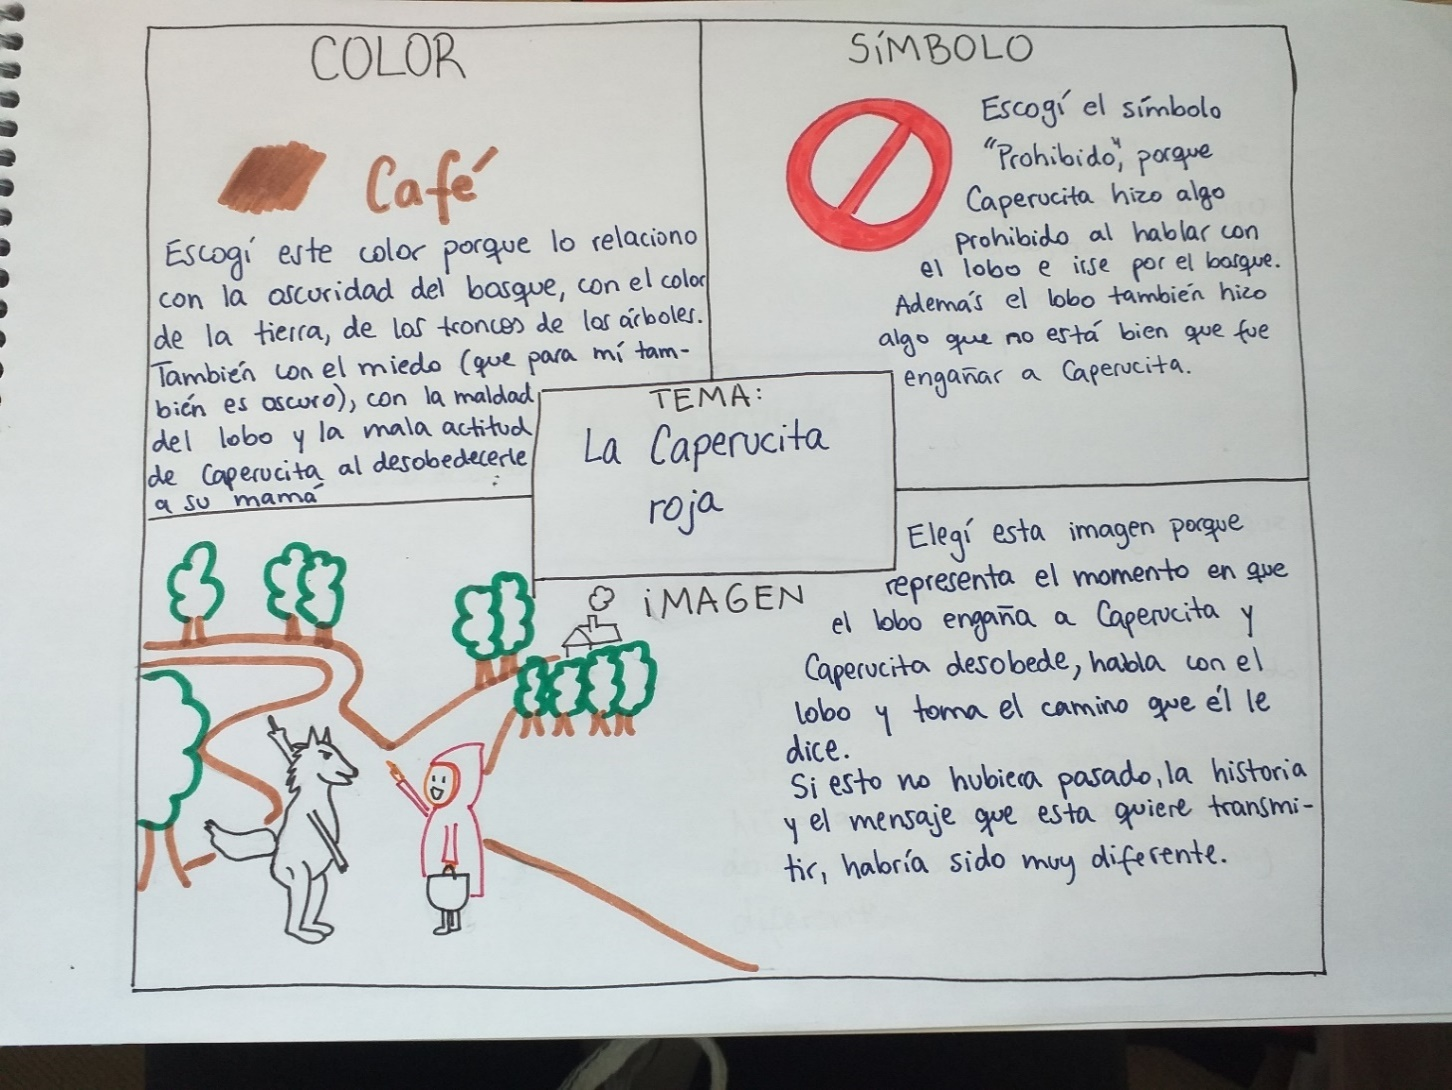 COLOR
Café
Escogí este color porque lo relaciono
con la oscuridad del bosque, con el color
de la tierra, de los troncos de los árboles.
También con el miedo (que para mí tam-
bién es oscuro), con la maldad
del lobo y la mala actitud
de Caperucita al desobedecerle
a su mamá
SíMBOLO
Escogí el símbolo
"Prohibido", porque
Caperucita hizo algo
prohibido al hablar con
el lobo e irse por el bosque.
Además el lobo también hizo
algo que no está bien que fue
engañar a Caperucita.
TEMA:
La Caperucita
roja
iMAGEN
Elegí esta imagen porque
representa el momento en que
el lobo engaña a Caperucita y
Caperucita desobede, habla con el
lobo y toma el camino que él le
dice.
Si esto no hubiera pasado, la historia
y el mensaje que esta quiere transmi-
tir, habría sido muy diferente.